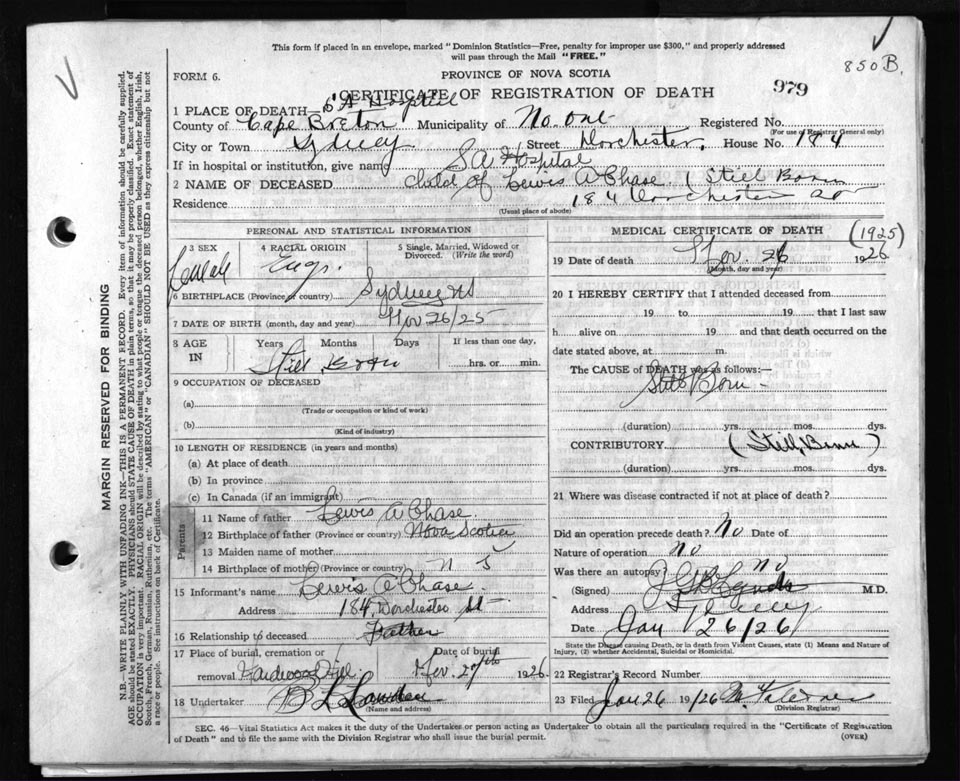 850B.
This form if placed in an envelope, marked "Dominion Statistics—Free, penalty for improper use $300," and properly addressed
will pass through the Mail "FREE."
FORM 6.
PROVINCE OF NOVA SCOTIA
CERTIFICATE OF REGISTRATION OF DEATH
979
1 PLACE OF DEATH— S A Hospital
County of Cape Breton Municipality of No. one Registered No.
(For use of Registrar General only)
City or Town Sydney Street Dorchester. House No. 184
If in hospital or institution, give name S A Hospital
2 NAME OF DECEASED child of Lewis A Chase (Still Born
Residence 184 Dorchester
(Usual place of abode)
PERSONAL AND STATISTICAL INFORMATION
3 SEX Female
4 RACIAL ORIGIN Eng.
5 Single, Married, Widowed or Divorced. (Write the word)
6 BIRTHPLACE (Province or country) Sydney NS
7 DATE OF BIRTH (month, day and year) Nov 26/25
8 AGE IN Years Months Days If less than one day, hrs. or min.
Still Born
9 OCCUPATION OF DECEASED
(a)
(Trade or occupation or kind of work)
(b)
(Kind of industry)
10 LENGTH OF RESIDENCE (in years and months)
(a) At place of death
(b) In province
(c) In Canada (if an immigrant)
Parents
11 Name of father Lewis A Chase.
12 Birthplace of father (Province or country) Nova Scotia
13 Maiden name of mother
14 Birthplace of mother (Province or country) N S
15 Informant's name Lewis A Chase
Address 184 Dorchester St
16 Relationship to deceased Father
17 Place of burial, cremation or Date of burial
removal Hardwood Hill Nov. 27th 1926
18 Undertaker
(Name and address)
MEDICAL CERTIFICATE OF DEATH
(1925)
19 Date of death Nov. 26 1926
(Month, day and year)
20 I HEREBY CERTIFY that I attended deceased from
19 to 19 that I last saw
h alive on 19 and that death occurred on the
date stated above, at m.
The CAUSE of DEATH was as follows:—
Still Born
(duration) yrs. mos. dys.
CONTRIBUTORY (Still Born)
(duration) yrs. mos. dys.
21 Where was disease contracted if not at place of death?
Did an operation precede death? No Date of
Nature of operation no
Was there an autopsy? No
(Signed) M.D.
Address Sydney
Date Jan 26/26
State the Disease causing Death, or in death from Violent Causes, state (1) Means and Nature of
Injury, (2) whether Accidental, Suicidal or Homicidal.
22 Registrar's Record Number
23 Filed Jan 26 1926
(Division Registrar)
SEC. 46—Vital Statistics Act makes it the duty of the Undertaker or person acting as Undertaker to obtain all the particulars required in the "Certificate of Registration
of Death" and to file the same with the Division Registrar who shall issue the burial permit.
(OVER)
MARGIN RESERVED FOR BINDING
N.B.—WRITE PLAINLY WITH UNFADING INK—THIS IS A PERMANENT RECORD. Every item of information should be carefully supplied.
AGE should be stated EXACTLY. PHYSICIANS should STATE CAUSE OF DEATH in plain terms, so that it may be properly classified. Exact statement of
OCCUPATION is very important. RACIAL ORIGIN will be described by stating to what people or tongue the deceased person belonged, whether English, Irish,
Scotch, French, German, Russian, Ruthenian, etc. The terms "AMERICAN" or "CANADIAN" SHOULD NOT BE USED as they express citizenship but not
a race or people. See instructions on back of Certificate.